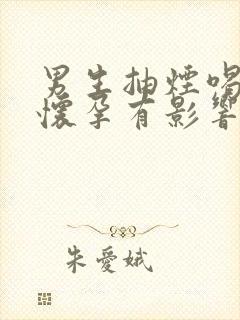 男生抽煙喝
懷孕有影響
朱愛娥